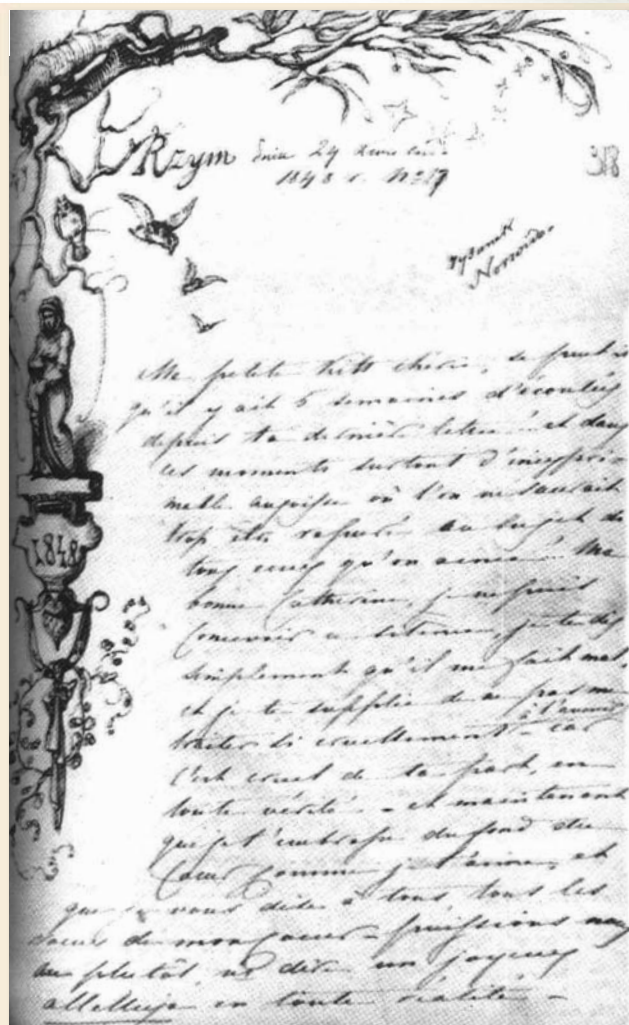 Rzym dnia 24
1848 r. No 17
318
rysunek
Norwida
Ma petite chérie, se peut-il
qu'il y ait 6 semaines d'écoulées
depuis ta dernière lettre et dans
ces moments surtout d'inexpri-
mable angoisse où l'on ne saurait
trop être rassuré au sujet de
tous ceux qu'on aime! Ma
bonne Catherine, je ne puis
concevoir ce silence, je te dis
simplement qu'il me fait mal,
et je te supplie de ne pas me
traiter si cruellement à l'avenir car
c'est cruel de ta part, en
toute vérité - et maintenant
que je t'embrasse du fond du
coeur comme je t'aime, et
que je vous dise à tous, tous les
voeux de mon coeur - puissions nous
au plutôt dire un joyeux
alleluja en toute réalité -
1848